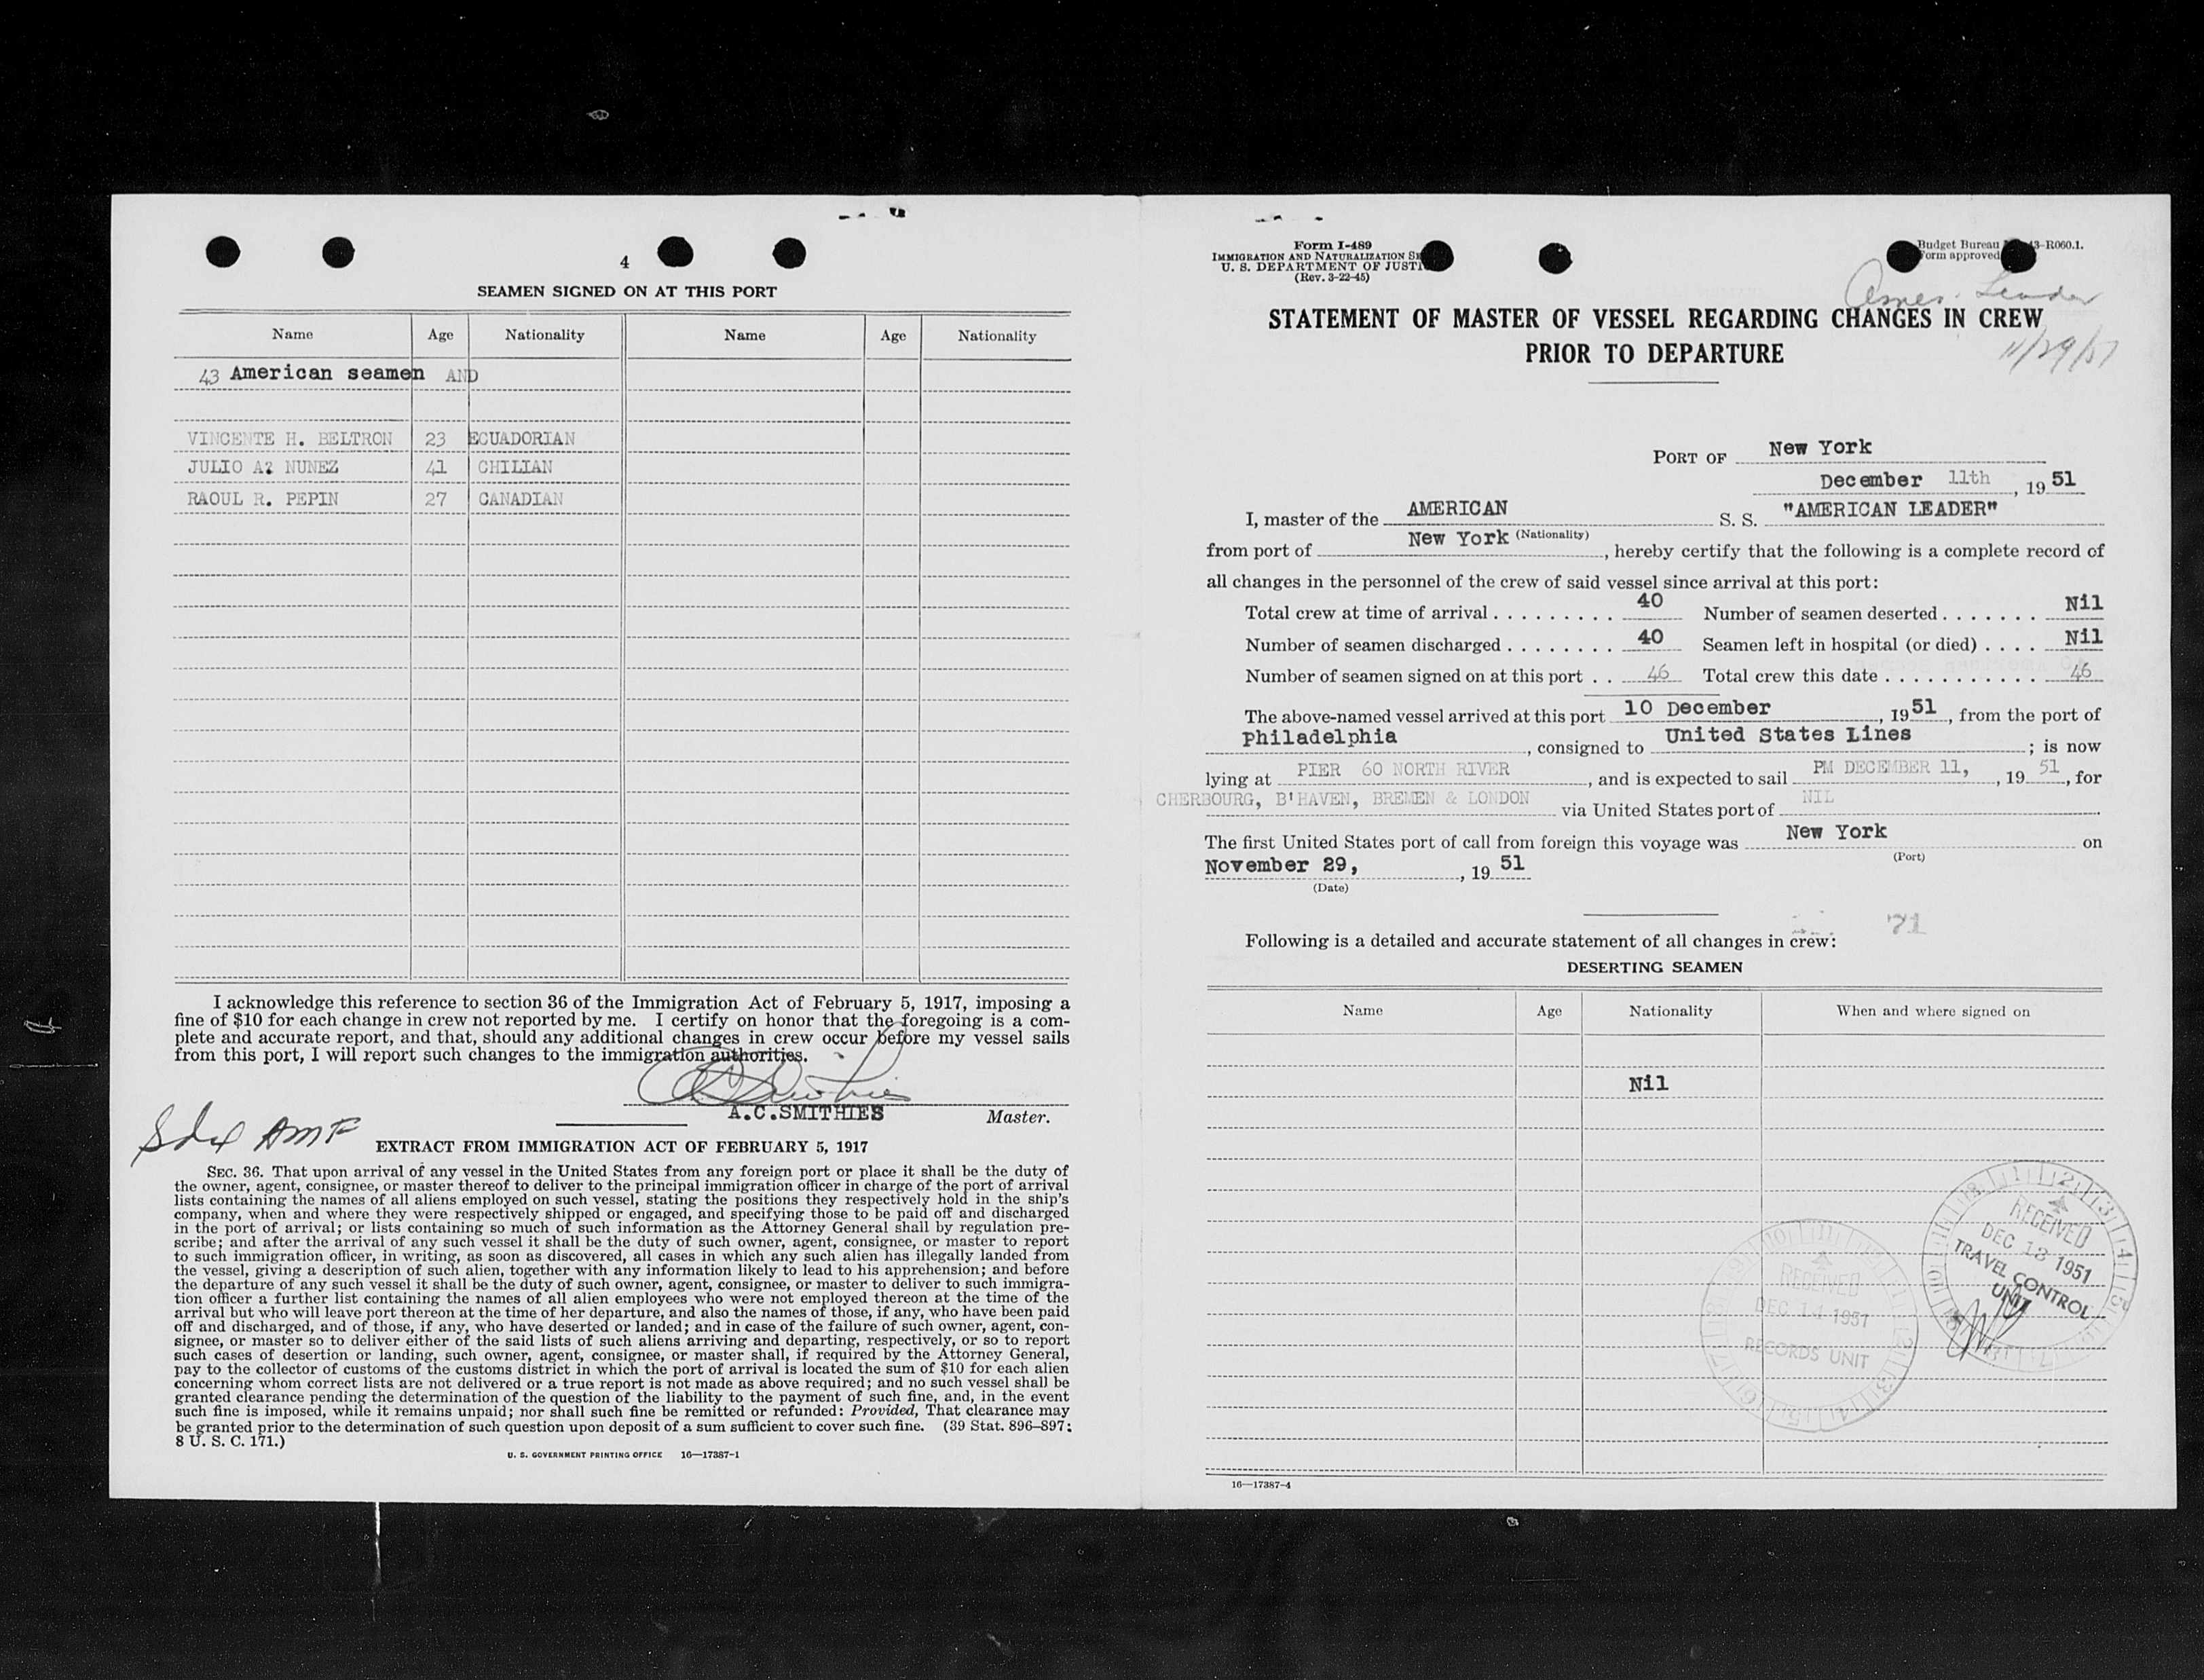 4
SEAMEN SIGNED ON AT THIS PORT
Name Age Nationality Name Age Nationality
43 American seamen AND
VINCENTE H. BELTRON 23 ECUADORIAN
JULIO A? NUNEZ 41 CHILIAN
RAOUL R. PEPIN 27 CANADIAN
I acknowledge this reference to section 36 of the Immigration Act of February 5, 1917, imposing a
fine of $10 for each change in crew not reported by me. I certify on honor that the foregoing is a com-
plete and accurate report, and that, should any additional changes in crew occur before my vessel sails
from this port, I will report such changes to the immigration authorities.
A.C.SMITHIES Master.
EXTRACT FROM IMMIGRATION ACT OF FEBRUARY 5, 1917
SEC. 36. That upon arrival of any vessel in the United States from any foreign port or place it shall be the duty of
the owner, agent, consignee, or master thereof to deliver to the principal immigration officer in charge of the port of arrival
lists containing the names of all aliens employed on such vessel, stating the positions they respectively hold in the ship's
company, when and where they were respectively shipped or engaged, and specifying those to be paid off and discharged
in the port of arrival; or lists containing so much of such information as the Attorney General shall by regulation pre-
scribe; and after the arrival of any such vessel it shall be the duty of such owner, agent, consignee, or master to report
to such immigration officer, in writing, as soon as discovered, all cases in which any such alien has illegally landed from
the vessel, giving a description of such alien, together with any information likely to lead to his apprehension; and before
the departure of any such vessel it shall be the duty of such owner, agent, consignee, or master to deliver to such immigra-
tion officer a further list containing the names of all alien employees who were not employed thereon at the time of the
arrival but who will leave port thereon at the time of her departure, and also the names of those, if any, who have been paid
off and discharged, and of those, if any, who have deserted or landed; and in case of the failure of such owner, agent, con-
signee, or master so to deliver either of the said lists of such aliens arriving and departing, respectively, or so to report
such cases of desertion or landing, such owner, agent, consignee, or master shall, if required by the Attorney General,
pay to the collector of customs of the customs district in which the port of arrival is located the sum of $10 for each alien
concerning whom correct lists are not delivered or a true report is not made as above required; and no such vessel shall be
granted clearance pending the determination of the question of the liability to the payment of such fine, and, in the event
such fine is imposed, while it remains unpaid; nor shall such fine be remitted or refunded: Provided, That clearance may
be granted prior to the determination of such question upon deposit of a sum sufficient to cover such fine. (39 Stat. 896–897;
8 U. S. C. 171.)
U. S. GOVERNMENT PRINTING OFFICE 16—17387-1
Form I-489
IMMIGRATION AND NATURALIZATION
U. S. DEPARTMENT OF
(Rev. 3-22-45)
Budget Bureau 43-R060.1.
Form approved
Amer. Leader
STATEMENT OF MASTER OF VESSEL REGARDING CHANGES IN CREW
PRIOR TO DEPARTURE
11/29/51
PORT OF New York
December 11th, 1951
I, master of the AMERICAN S. S. "AMERICAN LEADER"
(Nationality)
from port of New York, hereby certify that the following is a complete record of
all changes in the personnel of the crew of said vessel since arrival at this port:
Total crew at time of arrival . . . . . . . . . 40 Number of seamen deserted . . . . . . . Nil
Number of seamen discharged . . . . . . . . 40 Seamen left in hospital (or died) . . . . Nil
Number of seamen signed on at this port . . 46 Total crew this date . . . . . . . . . . . 46
The above-named vessel arrived at this port 10 December, 1951, from the port of
Philadelphia, consigned to United States Lines; is now
lying at PIER 60 NORTH RIVER, and is expected to sail PM DECEMBER 11, , 1951, for
CHERBOURG, B'HAVEN, BREMEN & LONDON via United States port of NIL
The first United States port of call from foreign this voyage was New York on
(Port)
November 29, , 1951
(Date)
71
Following is a detailed and accurate statement of all changes in crew:
DESERTING SEAMEN
Name Age Nationality When and where signed on
Nil
RECEIVED
DEC 13 1951
TRAVEL CONTROL
UNIT
RECEIVED
DEC 14 1951
RECORDS UNIT
16—17387-4